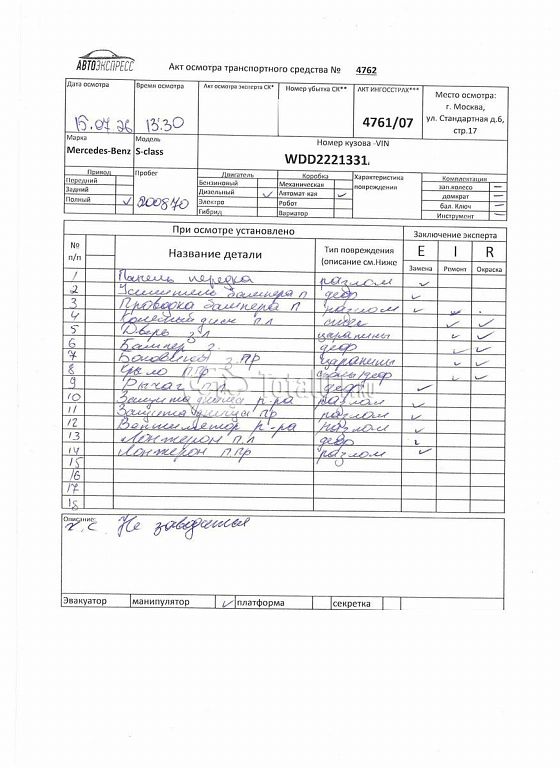 АВТОЭКСПРЕСС
Акт осмотра транспортного средства № 4762
Дата осмотра Время осмотра Акт осмотра эксперта СК* Номер убытка СК** АКТ ИНГОССТРАХ*** Место осмотра:
г. Москва,
ул. Стандартная д.6,
стр.17
15.07.26 13:30 4761/07
Марка Модель Номер кузова -VIN
Mercedes-Benz S-class WDD2221331
Привод Пробег Двигатель Коробка Характеристика повреждения Комплектация
Передний Бензиновый Механическая зап.колесо –
Задний Дизельный ✓ Автоматкая ✓ домкрат –
Полный ✓ 200870 Электро Робот бал. Ключ –
Гибрид Вариатор Инструмент –
При осмотре установлено Заключение эксперта
№ п/п Название детали Тип повреждения (описание см.Ниже E I R
Замена Ремонт Окраска
1 Панель передка разлом ✓
2 Усилитель бампера п деф ✓
3 Проводка бампера п разлом ✓
4 диск п л
5 Дверь з л царапины ✓ ✓
6 Бампер з. деф ✓ ✓
7 Боковина з.пр царапины ✓ ✓
8 Крыло п пр деф ✓ ✓
9 Рычаг п деф ✓
10 Защита р-ра разлом ✓
11 Защита пр разлом ✓
12 Вентилятор р-ра разлом ✓
13 Лонжерон п.л деф ✓
14 Лонжерон п.пр разлом ✓
15
16
17
18
Описание:
т.с. Не заводится
Эвакуатор манипулятор ✓ платформа секретка